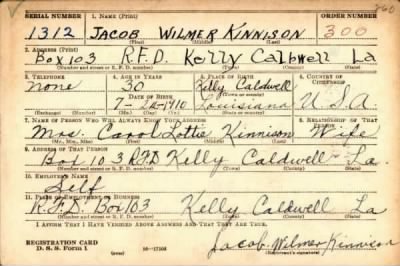 SERIAL NUMBER 1. NAME (Print) ORDER NUMBER
1312 JACOB WILMER KINNISON 300
(First) (Middle) (Last)
2. ADDRESS (Print)
Box 103 R.F.D. Kelly Caldwell La
(Number and street or R. F. D. number) (Town) (County) (State)
3. TELEPHONE 4. AGE IN YEARS 5. PLACE OF BIRTH 6. COUNTRY OF CITIZENSHIP
None 30 Kelly Caldwell
DATE OF BIRTH (Town or county)
7- -1910 Louisiana U.S.A.
(Exchange) (Number) (Mo.) (Day) (Yr.) (State or country)
7. NAME OF PERSON WHO WILL ALWAYS KNOW YOUR ADDRESS 8. RELATIONSHIP OF THAT PERSON
Mrs. Carol Lottie Kinnison Wife
(Mr., Mrs., Miss) (First) (Middle) (Last)
9. ADDRESS OF THAT PERSON
Box 103 RFD Kelly Caldwell La.
(Number and street or R. F. D. number) (Town) (County) (State)
10. EMPLOYER'S NAME
Self
11. PLACE OF EMPLOYMENT OR BUSINESS
R.F.D. Box 103 Kelly Caldwell La
(Number and street or R. F. D. number) (Town) (County) (State)
I AFFIRM THAT I HAVE VERIFIED ABOVE ANSWERS AND THAT THEY ARE TRUE.
REGISTRATION CARD
D. S. S. Form 1 (over) 16—17105 Jacob Wilmer Kinnison
(Registrant's signature)